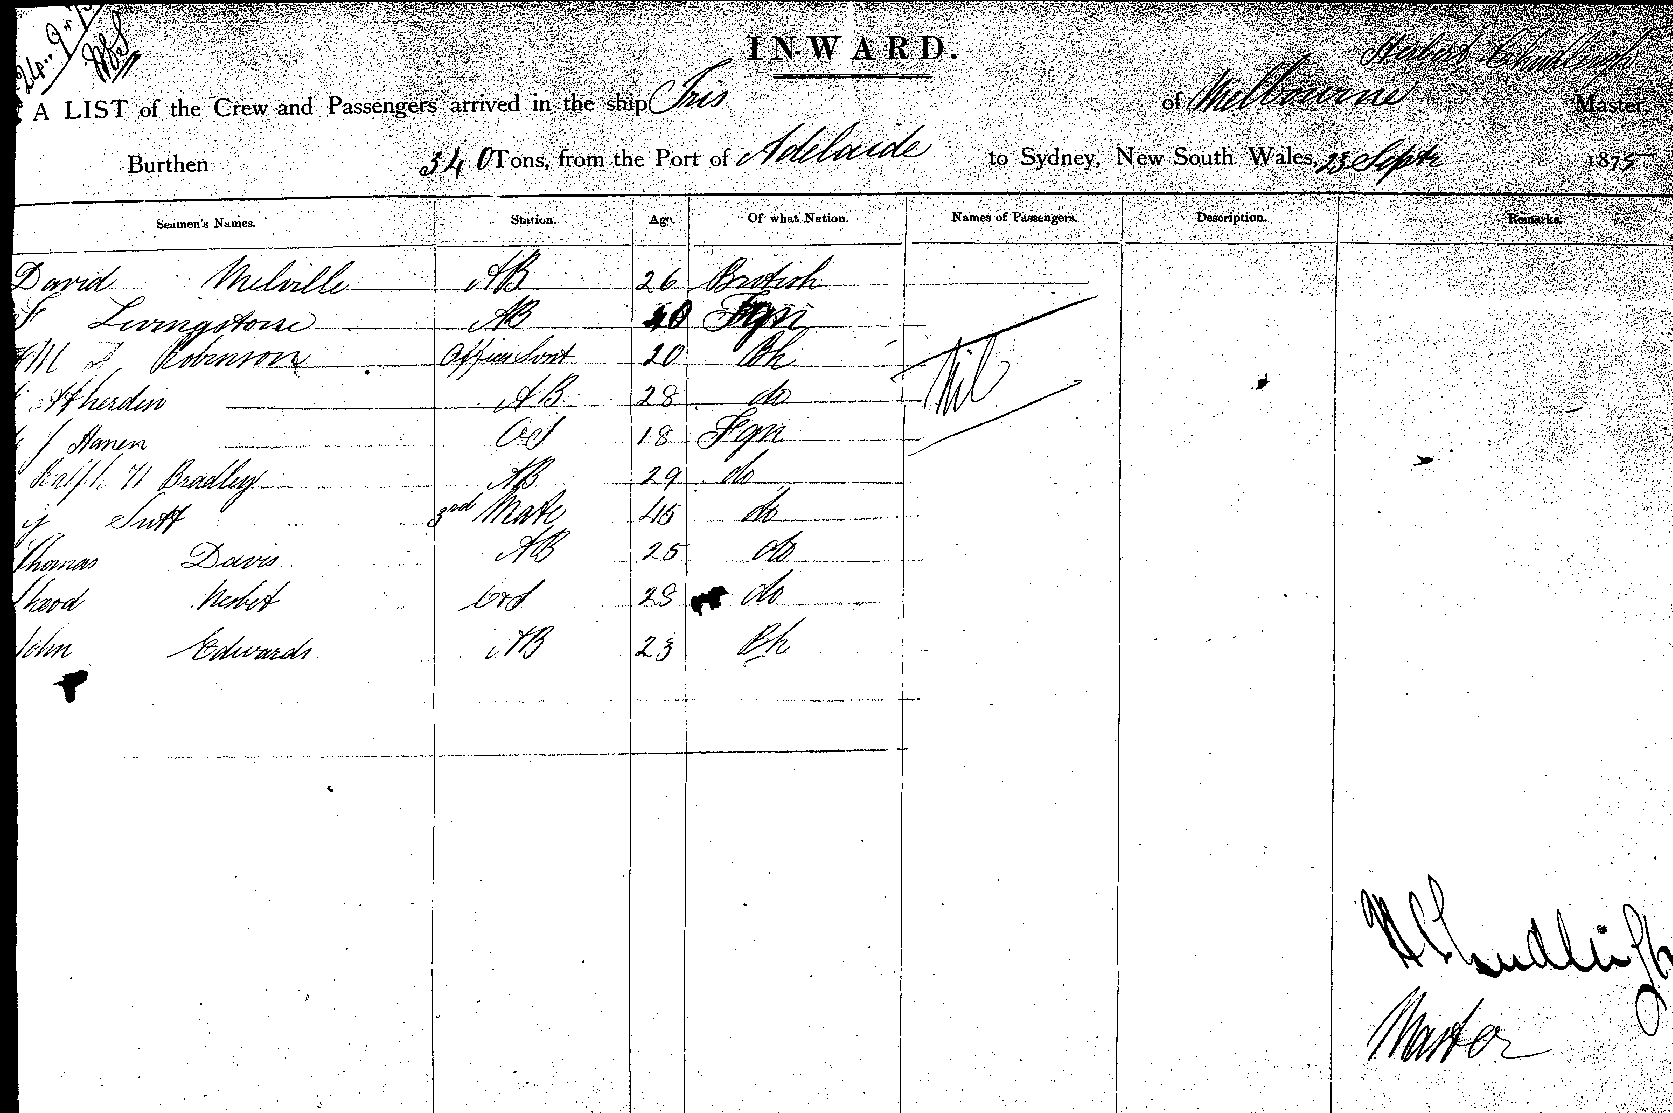 24..9..75
INWARD.
A LIST of the Crew and Passengers arrived in the ship Iris of Melbourne Herbert Chudleigh Master
Burthen 340 Tons, from the Port of Adelaide to Sydney, New South Wales, 23 Septr 1875
Seamen's Names. Station. Age. Of what Nation. Names of Passengers. Description. Remarks.
David Melville AB 26 British
F Livingstone AB 40 Fgn
Robinson 20 Bh
Atherdin AB 28 do
J Hanen Ord 18 Fgn
Ralph H Bradley AB 29 do
Tutt 3rd Mate 45 do
Thomas Davis AB 25 do
Nesbit Ord 28 do
John Edwards AB 23 Bh
Nil
H Chudleigh
Master